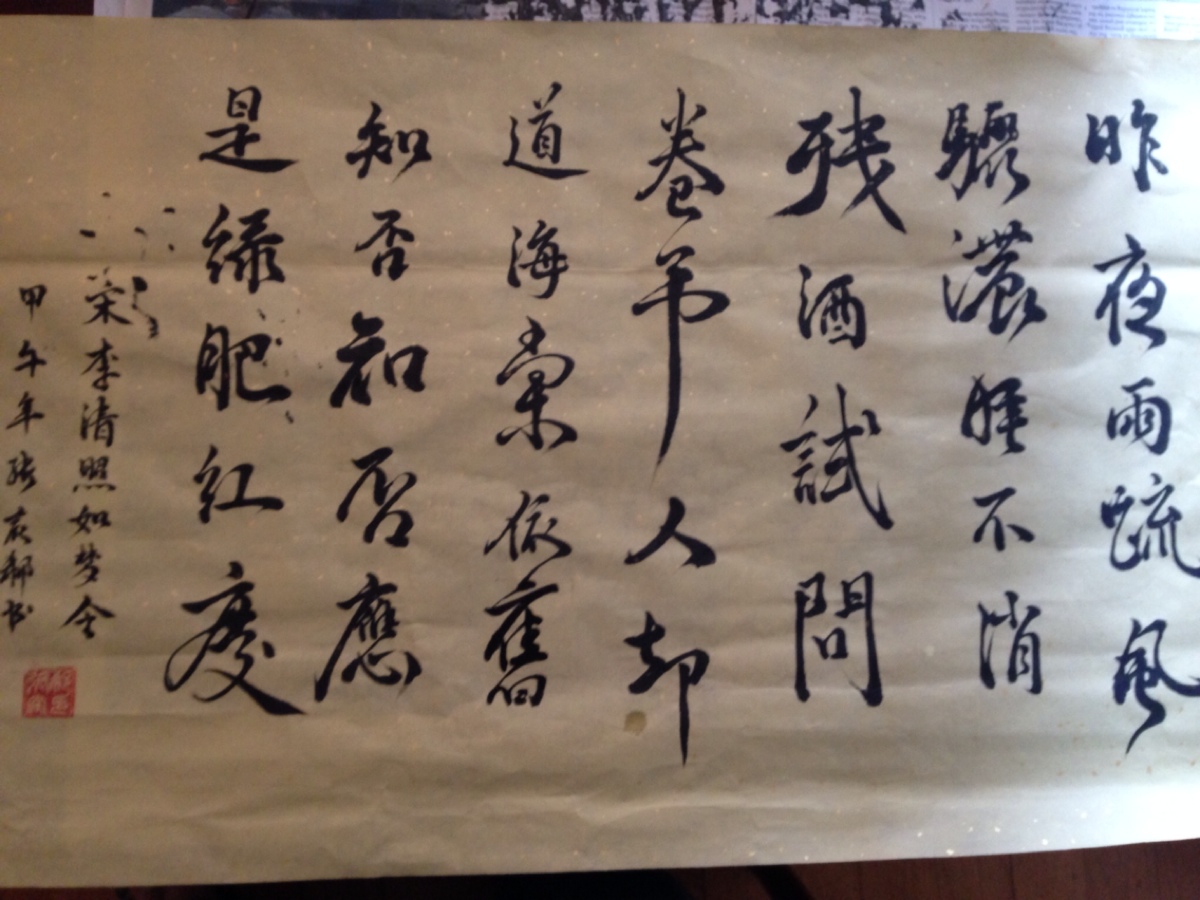 昨夜雨疏風
驟濃睡不消
残酒試問
卷帘人却
道海棠依舊
知否知否應
是绿肥紅瘦
宋李清照如梦令
甲午年张书